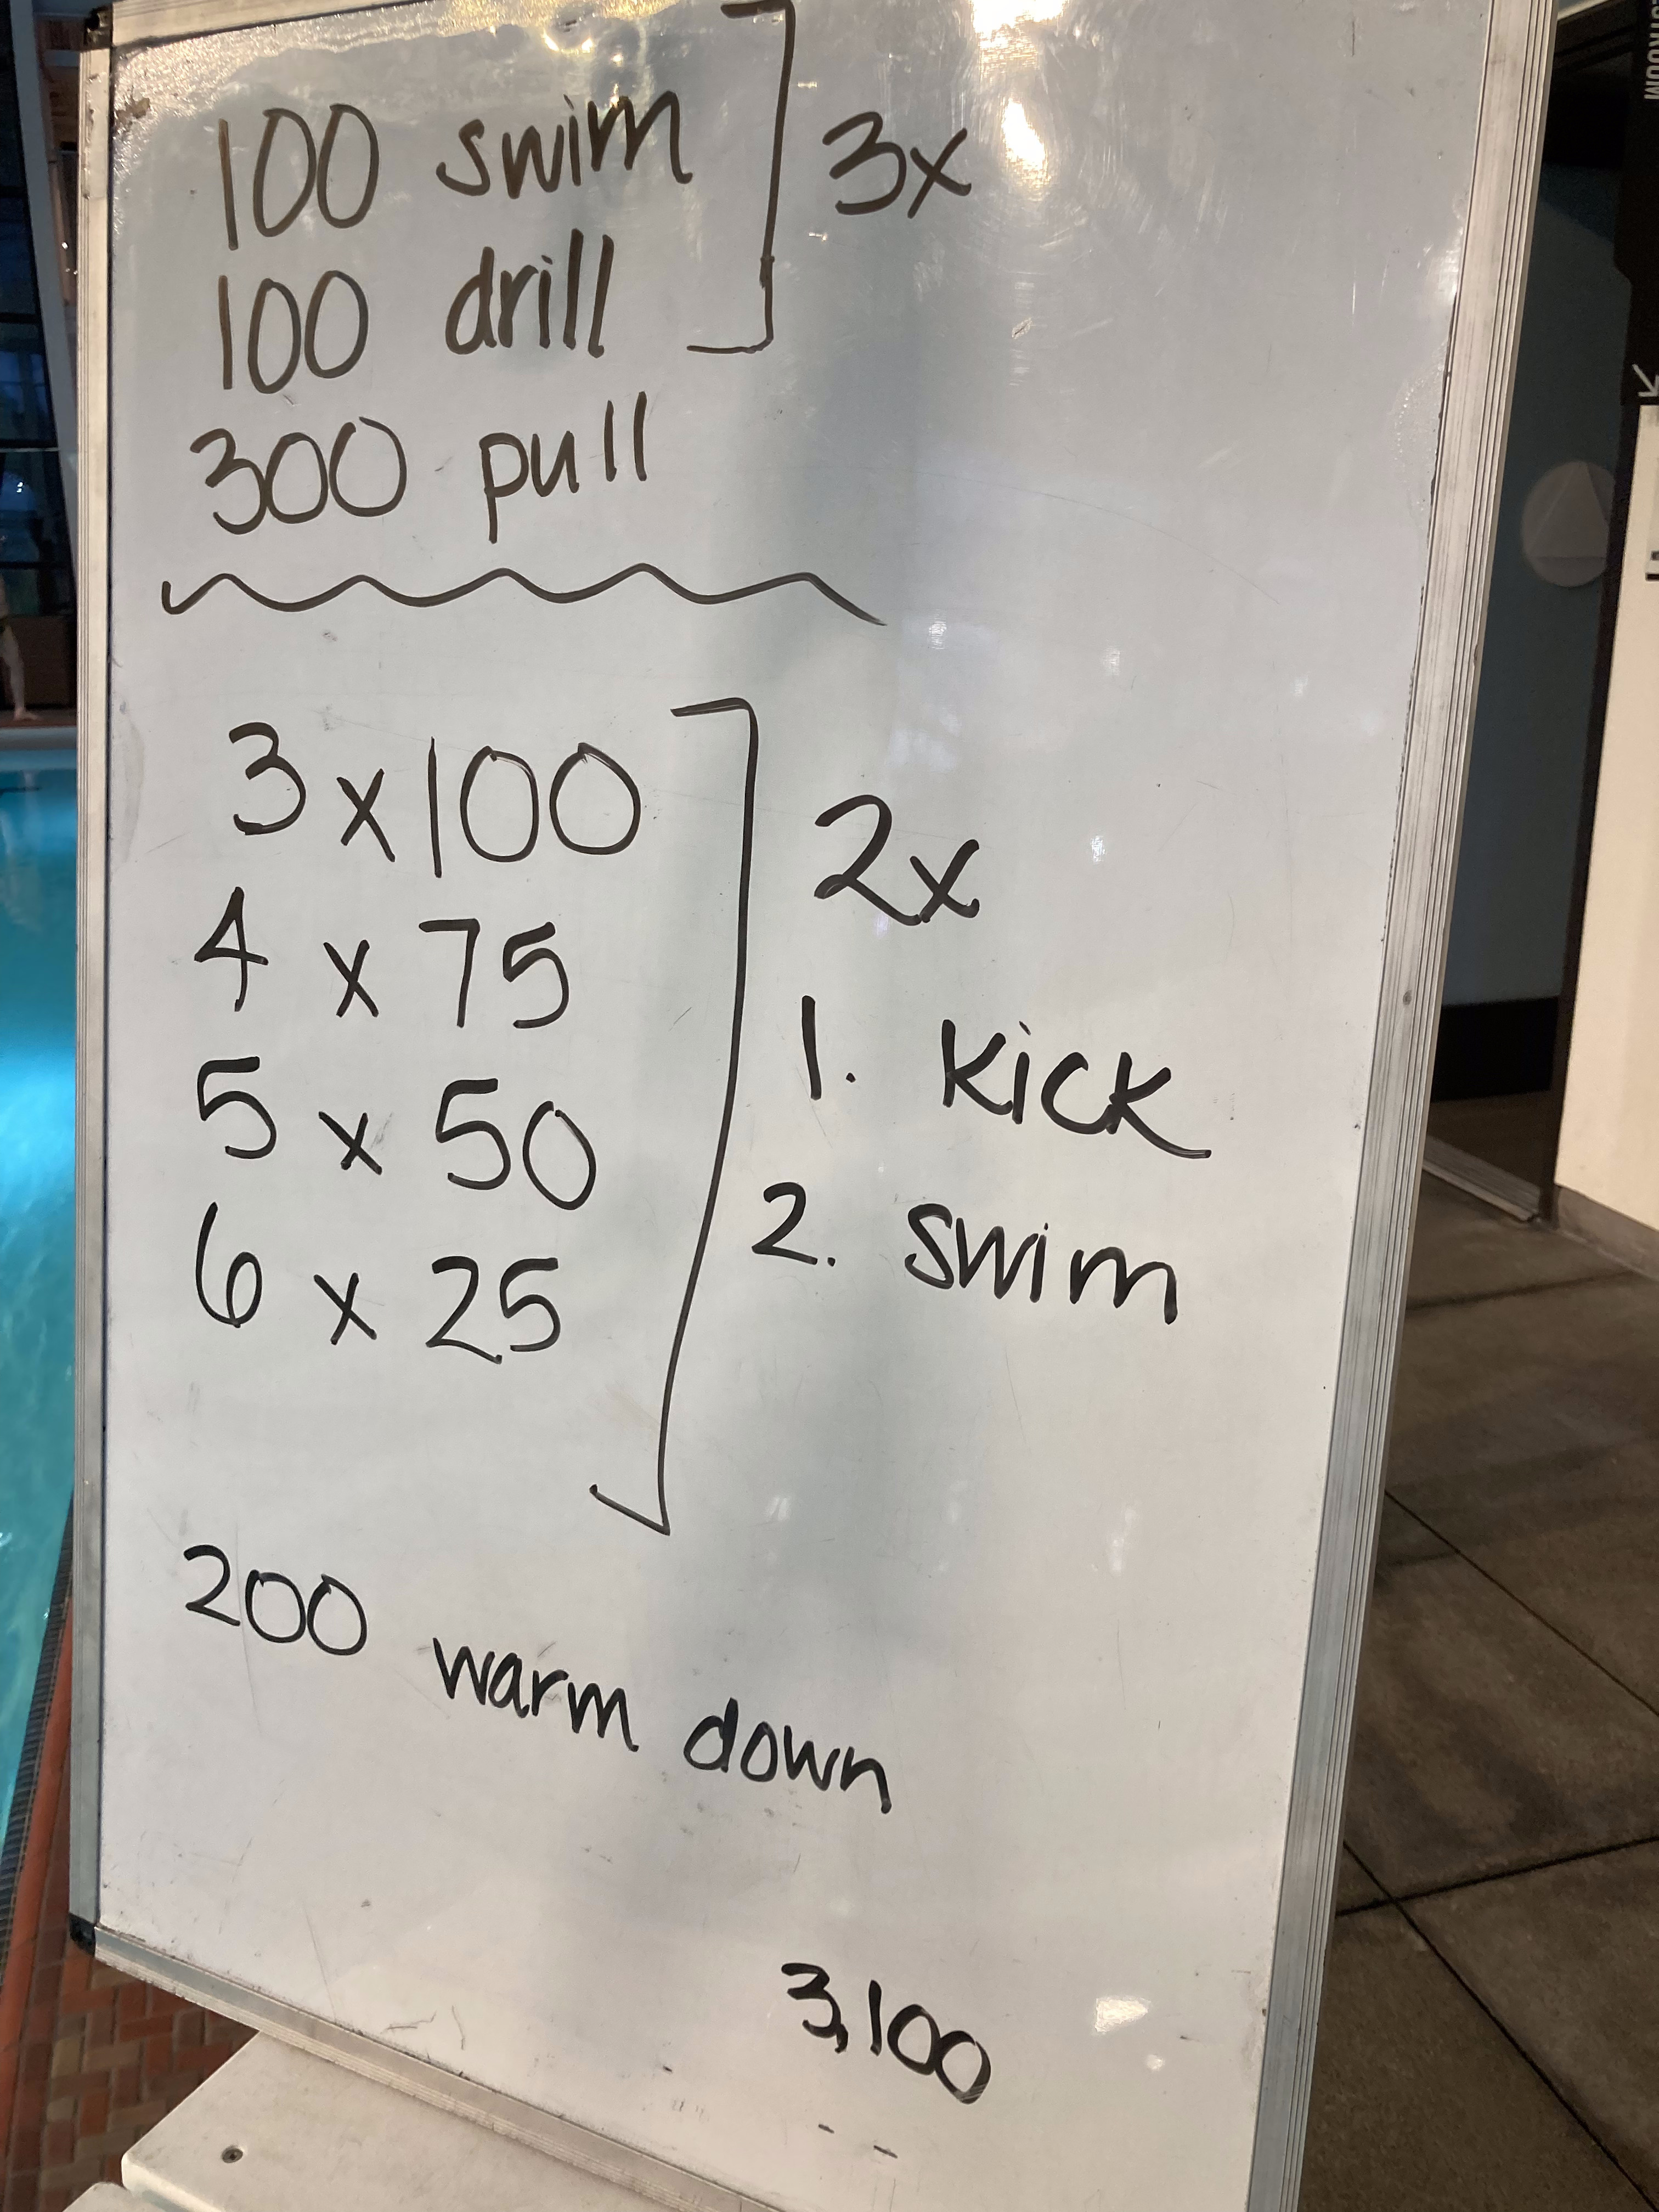 100 swim
100 drill
3x
300 pull
3 x 100
4 x 75
5 x 50
6 x 25
2x
1. Kick
2. Swim
200 warm down
3,100